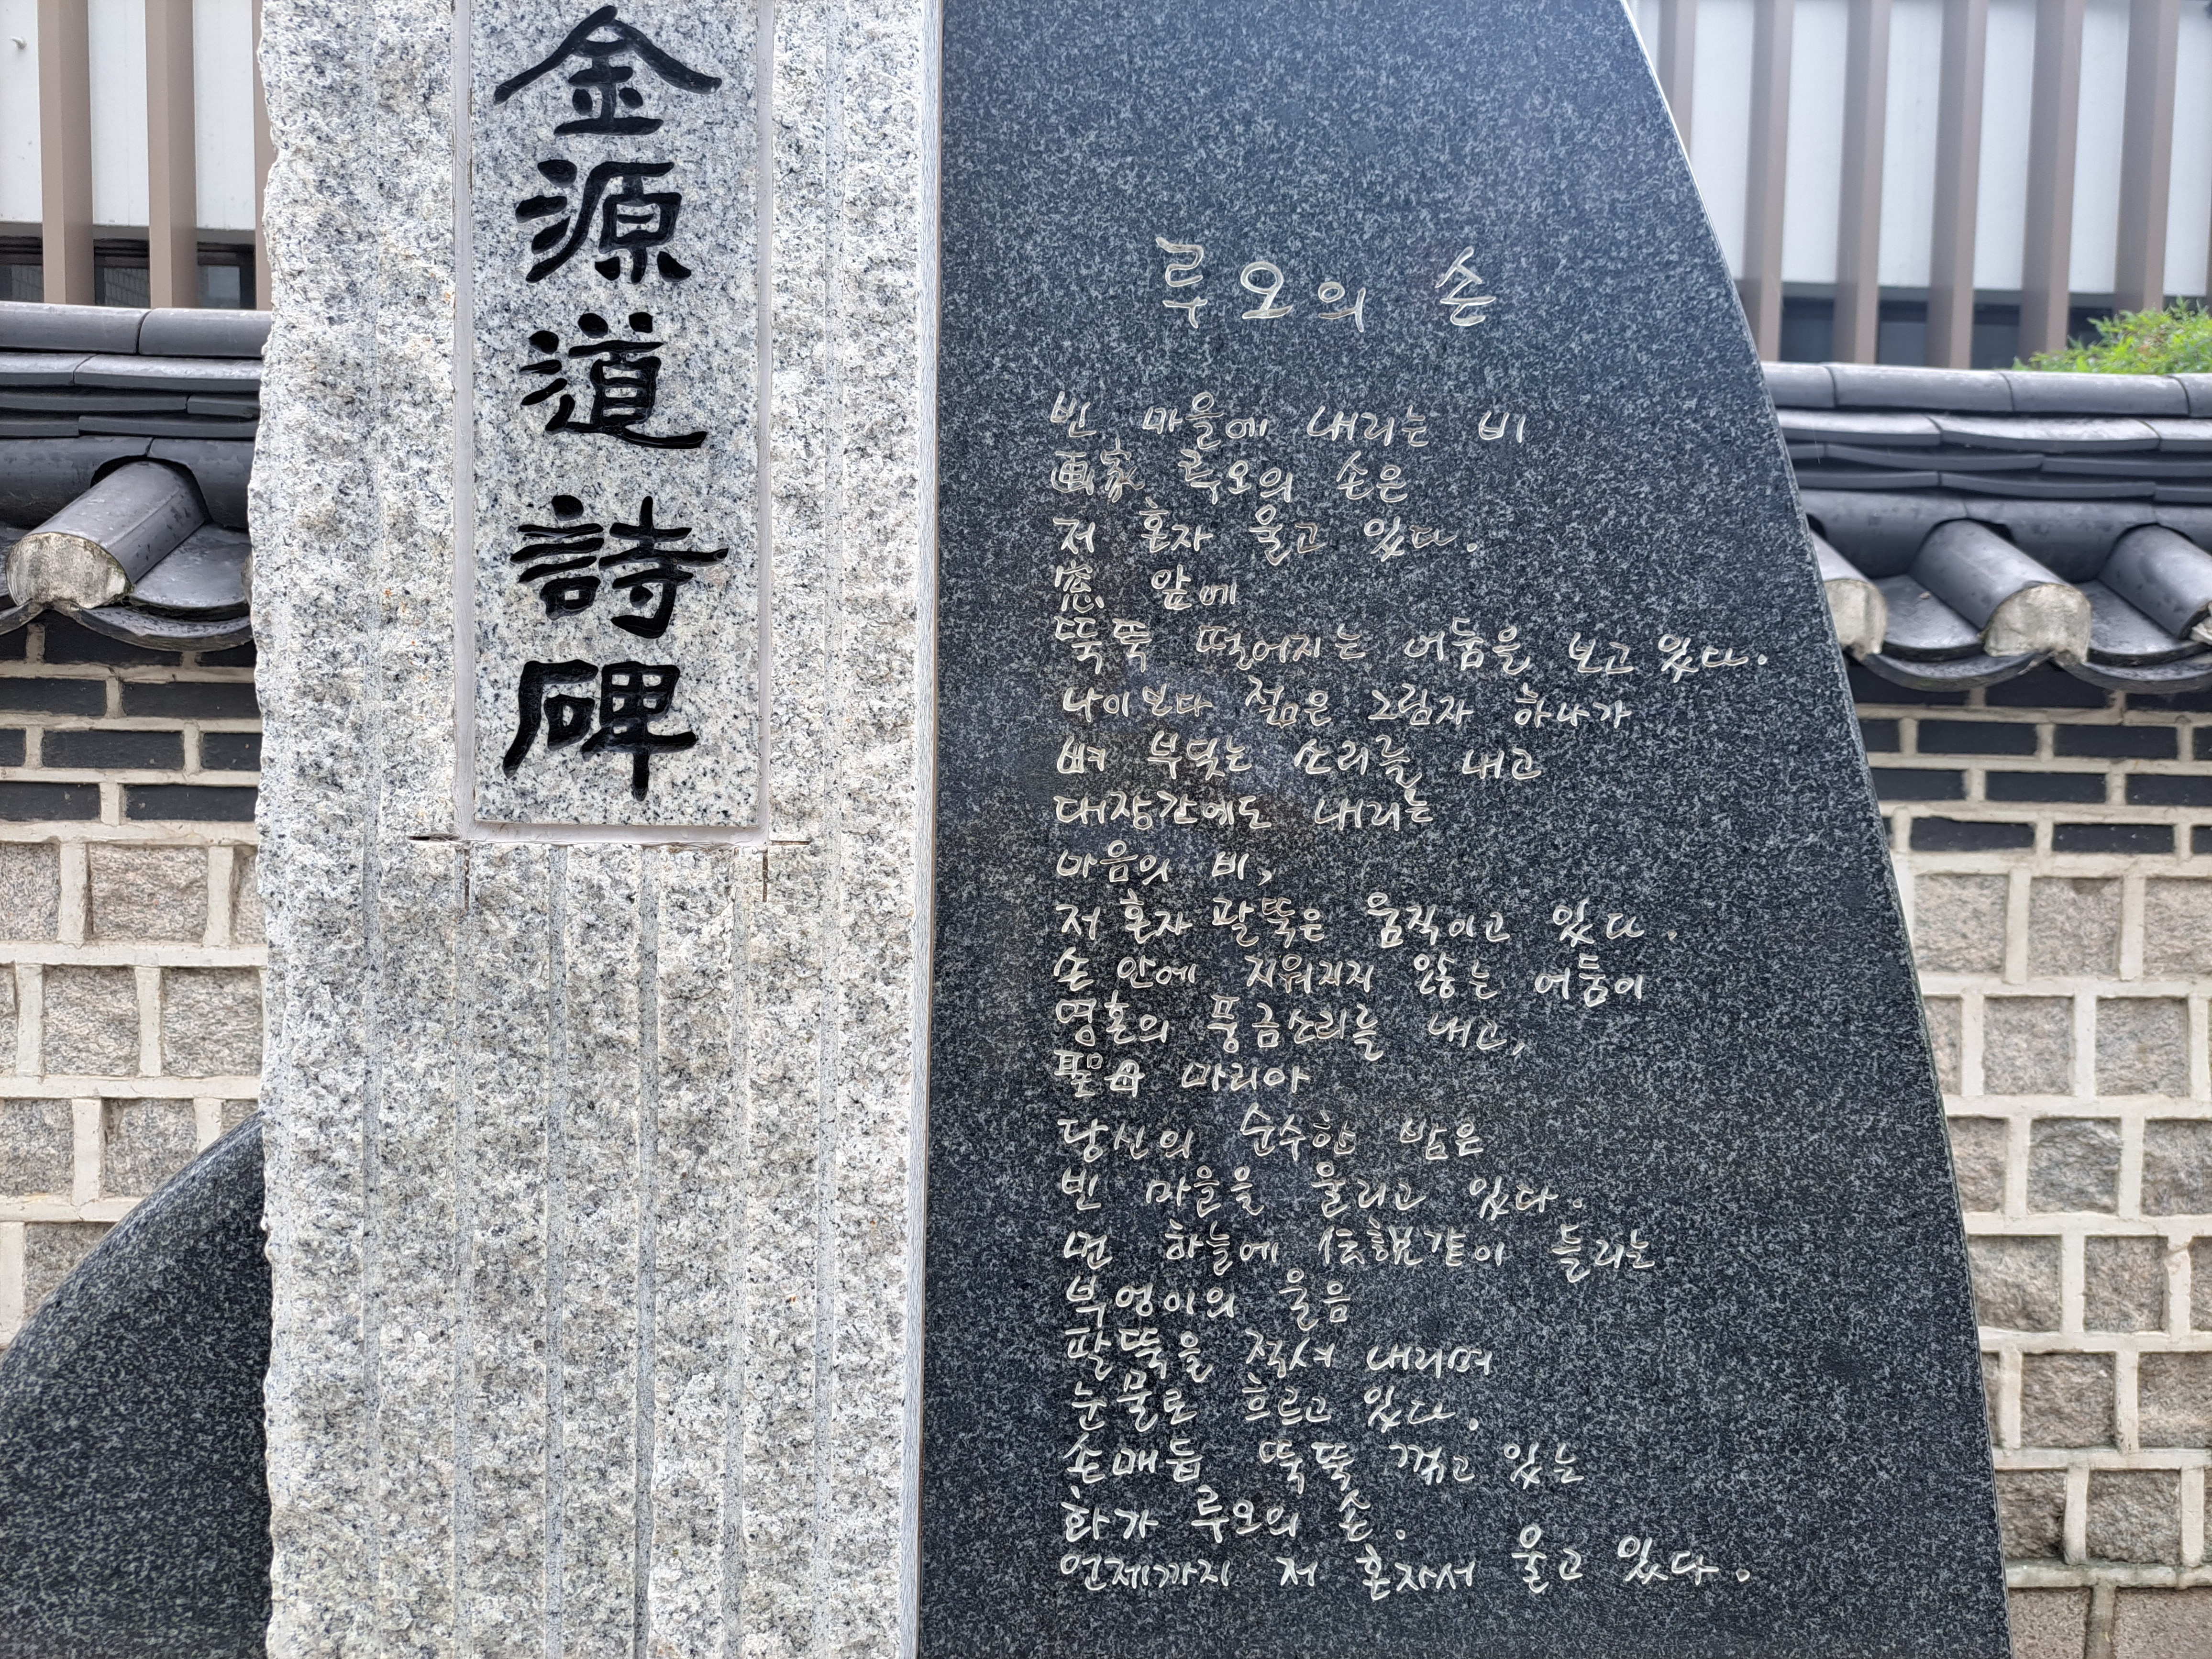 金源道詩碑
루오의 손
빈 마을에 내리는 비
画家 루오의 손은
저 혼자 울고 있다.
窓 앞에
뚝뚝 떨어지는 어둠을 보고 있다.
나이보다 젊은 그림자 하나가
뼈 부딪는 소리를 내고
대장간에도 내리는
마음의 비,
저 혼자 팔뚝은 움직이고 있다.
손 안에 지워지지 않는 어둠이
영혼의 풍금소리를 내고,
聖母 마리아
당신의 순수한 밤은
빈 마을을 울리고 있다.
먼 하늘에 伝説같이 들리는
부엉이의 울음
팔뚝을 적셔 내리며
눈물로 흐르고 있다.
손매듭 뚝뚝 꺾고 있는
화가 루오의 손.
언제까지 저 혼자서 울고 있다.